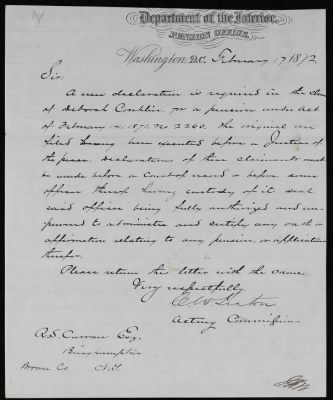 Department of the Interior,
PENSION OFFICE,
Washington, D.C. February 17 1872
Sir.
A new declaration is required in the claim
of Deborah Conklin for a pension under Act
of February 14, 1871. No 2260. The original one
filed having been executed before a Justice of
the peace. Declarations of these claimants must
be made before a Court of record or before some
officer thereof having custody of its seal
said officer being fully authorized and em-
powered to administer and certify any oath or
affirmation relating to any pension, or application
therefor.
Please return this letter with the same
Very respectfully
Acting Commissioner
R.S. Curran Esq.
Binghampton
Broome Co N.Y.